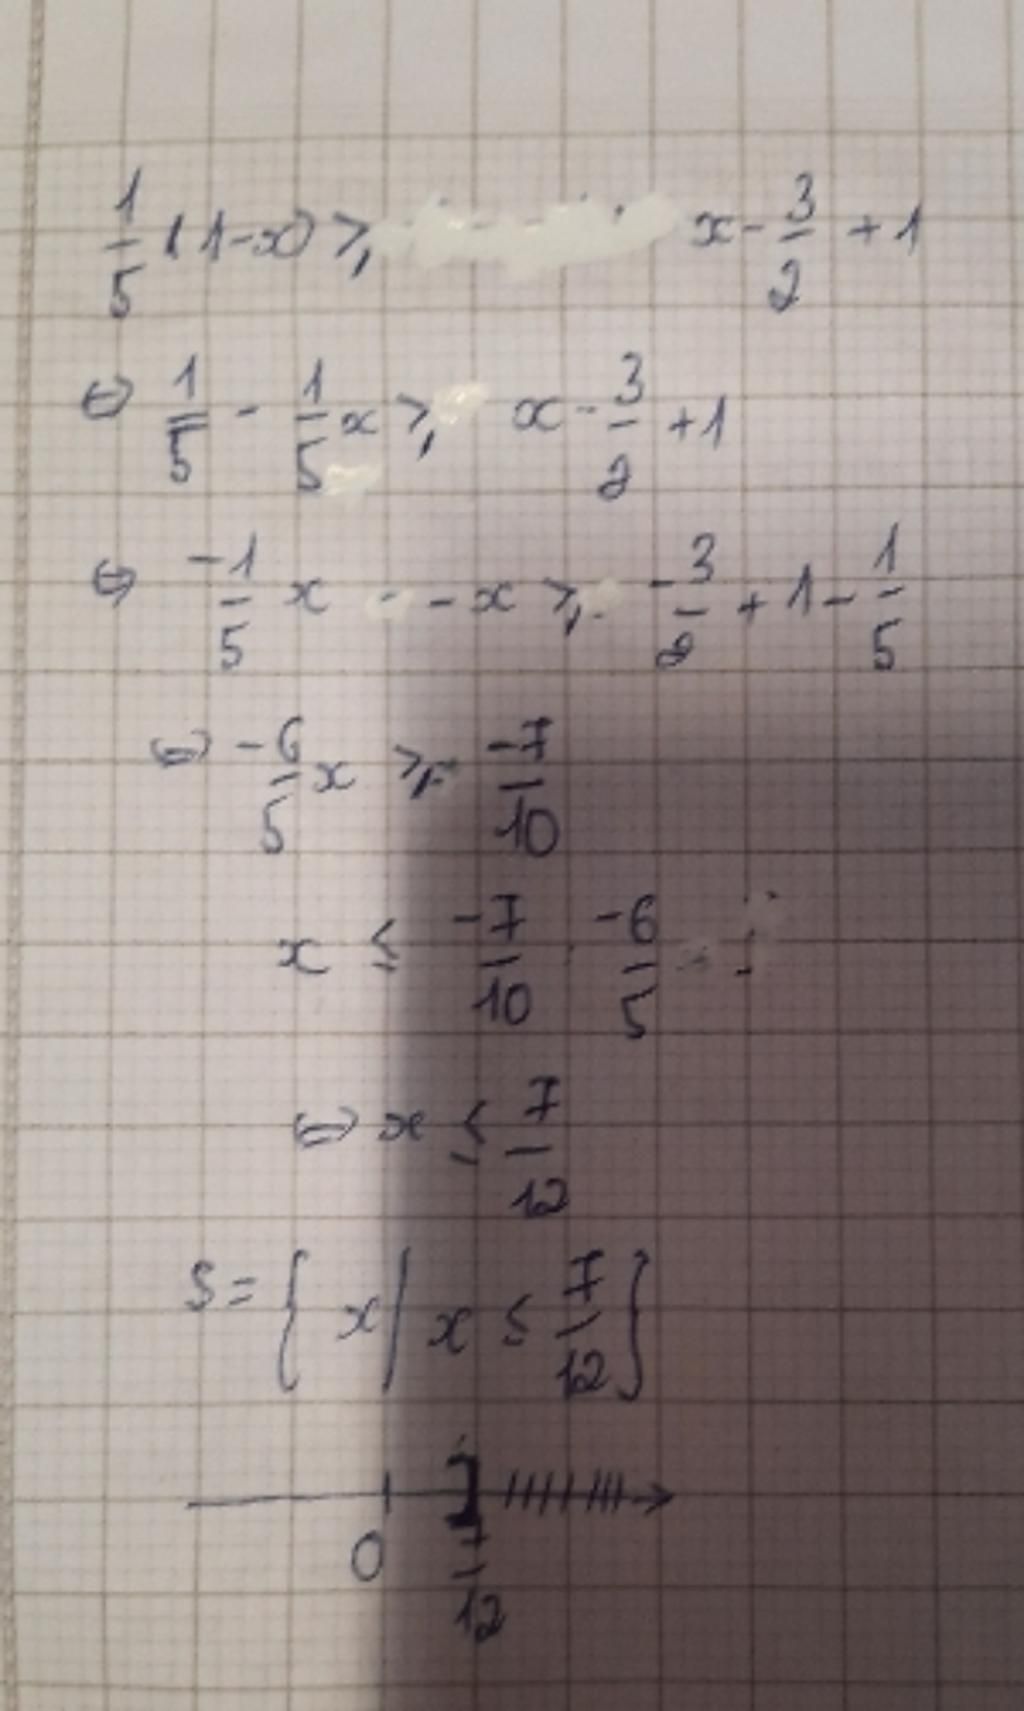 1/5 (1-x) ≥ x - 3/2 + 1
⇔ 1/5 - 1/5 x ≥ x - 3/2 + 1
⇔ -1/5 x - x ≥ -3/2 + 1 - 1/5
⇔ -6/5 x ≥ -7/10
x ≤ -7/10 : -6/5
⇔ x ≤ 7/12
S = { x | x ≤ 7/12 }
0 7/12